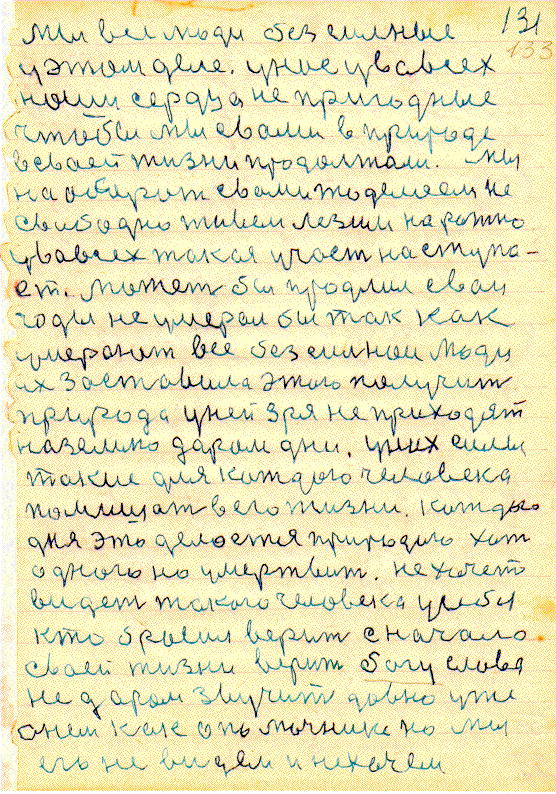 131
133
мы все люди без сильные
у этом деле. у нас у ва всех
наши сердца не пригодные
чтобы мы свами в природе
всваей жизни продолжали. мы
на оборот свами то делаем не
свободно живем лезим на рожно
у ва всех такая участ наступа-
ет. может бы продлил сваи
годы не умерал бы так как
умерают все без сильнои люди
их заставила этого получит
природа у ней зря не приходят
на землю даром дни. у них силы
такие для каждого человека
помешат в его жизни. каждого
дня это делается природою хот
одного но умертвит. не хочет
видет такого человека у себя
кто бросил верит с начало
сваей жизни верит богу слова
не даром звучит довно уже
о нем как о помочнике но мы
его не видем и нехочем